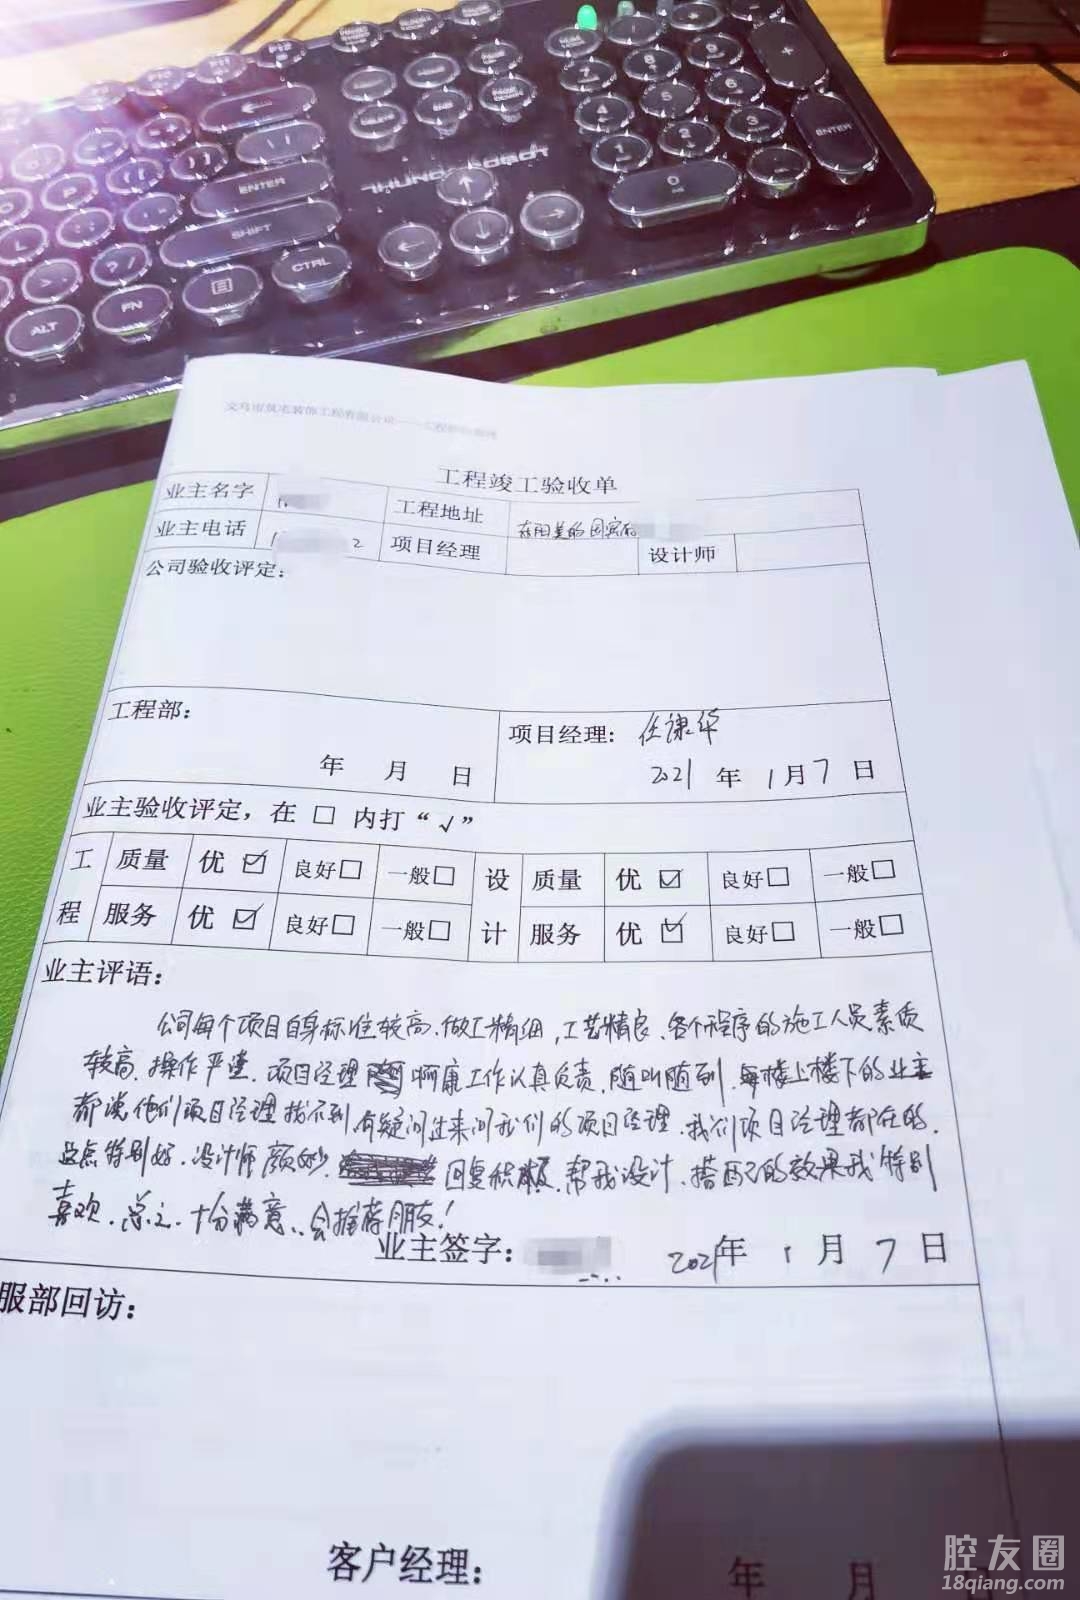 工程竣工验收单
业主名字 工程地址 东阳美的国宾府
业主电话 1 2 项目经理 设计师
公司验收评定:
工程部: 项目经理: 任康华
年 月 日 2021 年 1 月 7 日
业主验收评定，在 □ 内打“√”
工程 质量 优 ☑ 良好□ 一般□ 设计 质量 优 ☑ 良好□ 一般□
服务 优 ☑ 良好□ 一般□ 服务 优 ☑ 良好□ 一般□
业主评语:
公司每个项目自身标准较高、做工精细,工艺精良、各个程序的施工人员素质
较高、操作严谨、项目经理 啊康工作认真负责、随叫随到、每楼上楼下的业主
都说他们项目经理找不到,有疑问过来问我们的项目经理、我们项目经理都在的、
这点特别好、设计师颜妙、回复积极、帮我设计、搭配的效果我特别
喜欢、总之、十分满意、会推荐朋友!
业主签字: 2021年 1 月 7 日
服部回访:
客户经理: 年 月 日
腔友圈
18qiang.com
ENTER
SHIFT
CTRL
FN
ALT
ENTER